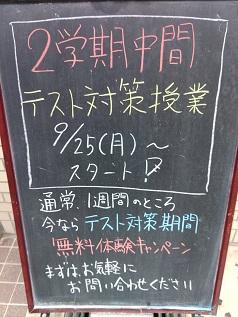 2学期中間
テスト対策授業
9/25(月)～
スタート!
通常、1週間のところ
今なら テスト対策期間
無料体験キャンペーン
まずはお気軽に
お問い合わせください